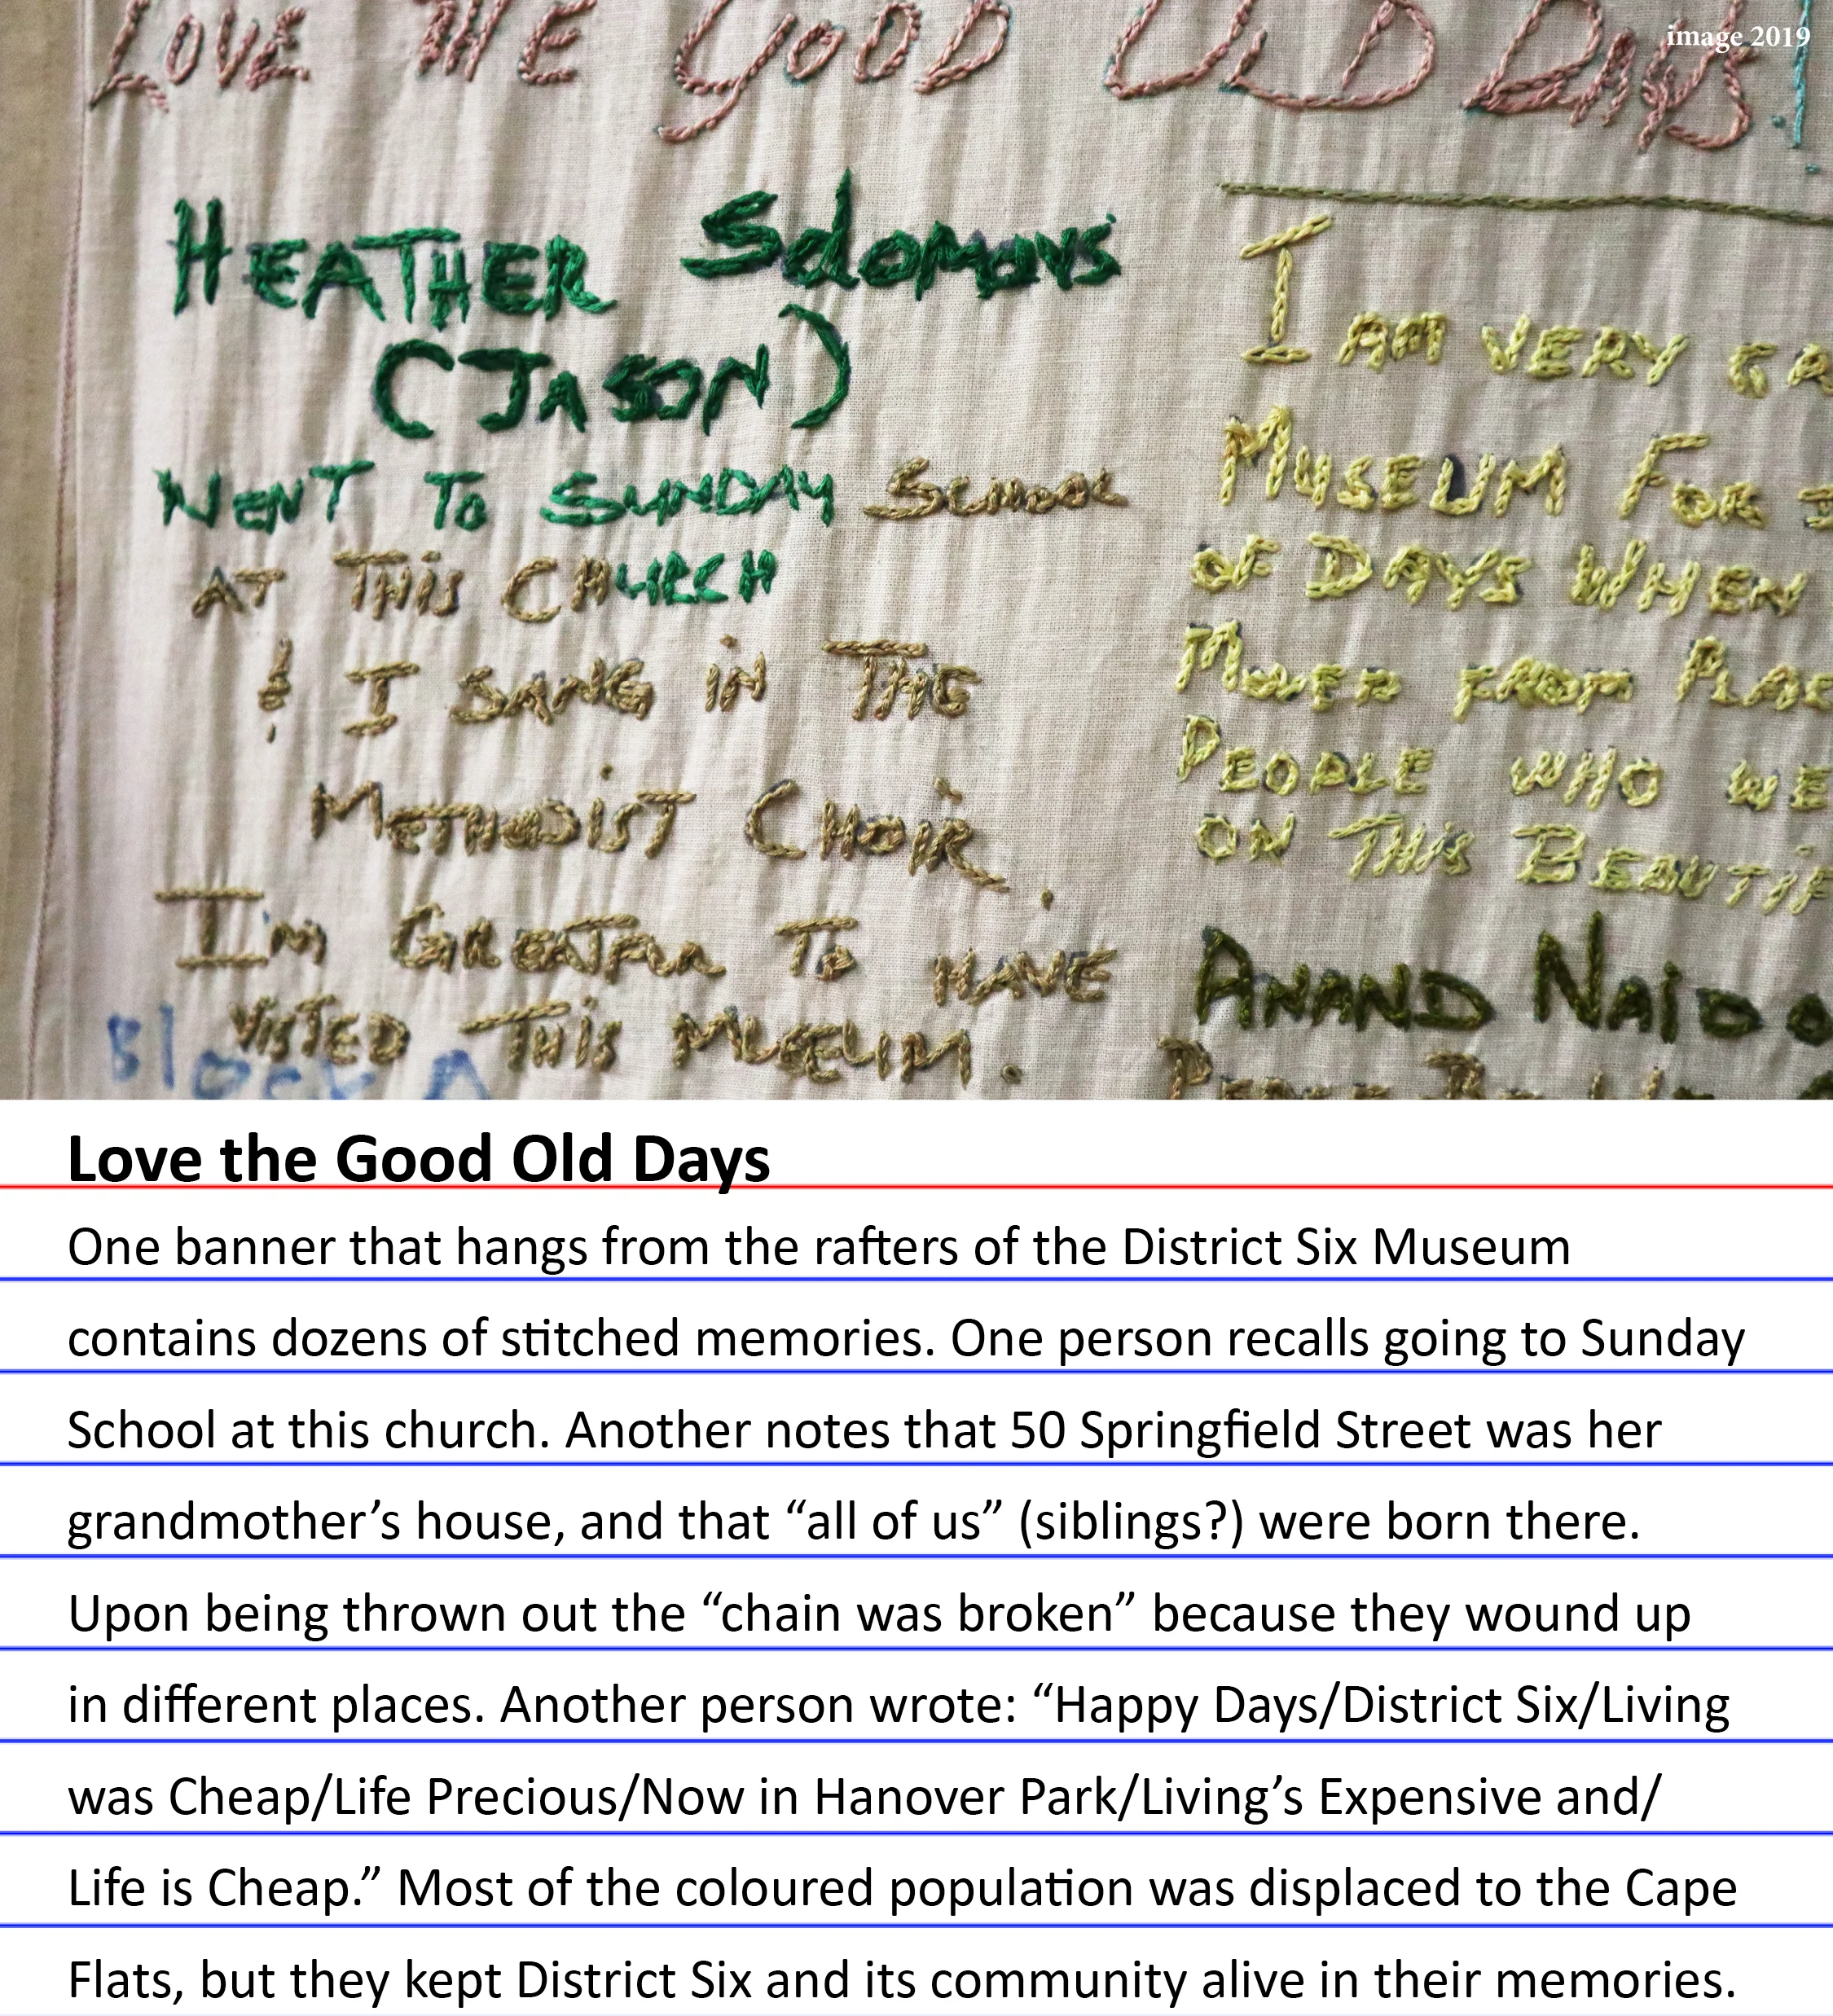 image 2019
LOVE THE GOOD OLD DAYS!
HEATHER Solomons
(JASON)
WENT TO SUNDAY SCHOOL
AT THIS CHURCH
& I SANG IN THE
METHODIST CHOIR.
I'm GREATFUL TO HAVE
VISITED THIS MUSEUM.
Block A
I AM VERY
MUSEUM FOR
OF DAYS WHEN
MOVED FROM
PEOPLE WHO
ON THIS
ANAND
Love the Good Old Days
One banner that hangs from the rafters of the District Six Museum
contains dozens of stitched memories. One person recalls going to Sunday
School at this church. Another notes that 50 Springfield Street was her
grandmother’s house, and that “all of us” (siblings?) were born there.
Upon being thrown out the “chain was broken” because they wound up
in different places. Another person wrote: “Happy Days/District Six/Living
was Cheap/Life Precious/Now in Hanover Park/Living’s Expensive and/
Life is Cheap.” Most of the coloured population was displaced to the Cape
Flats, but they kept District Six and its community alive in their memories.